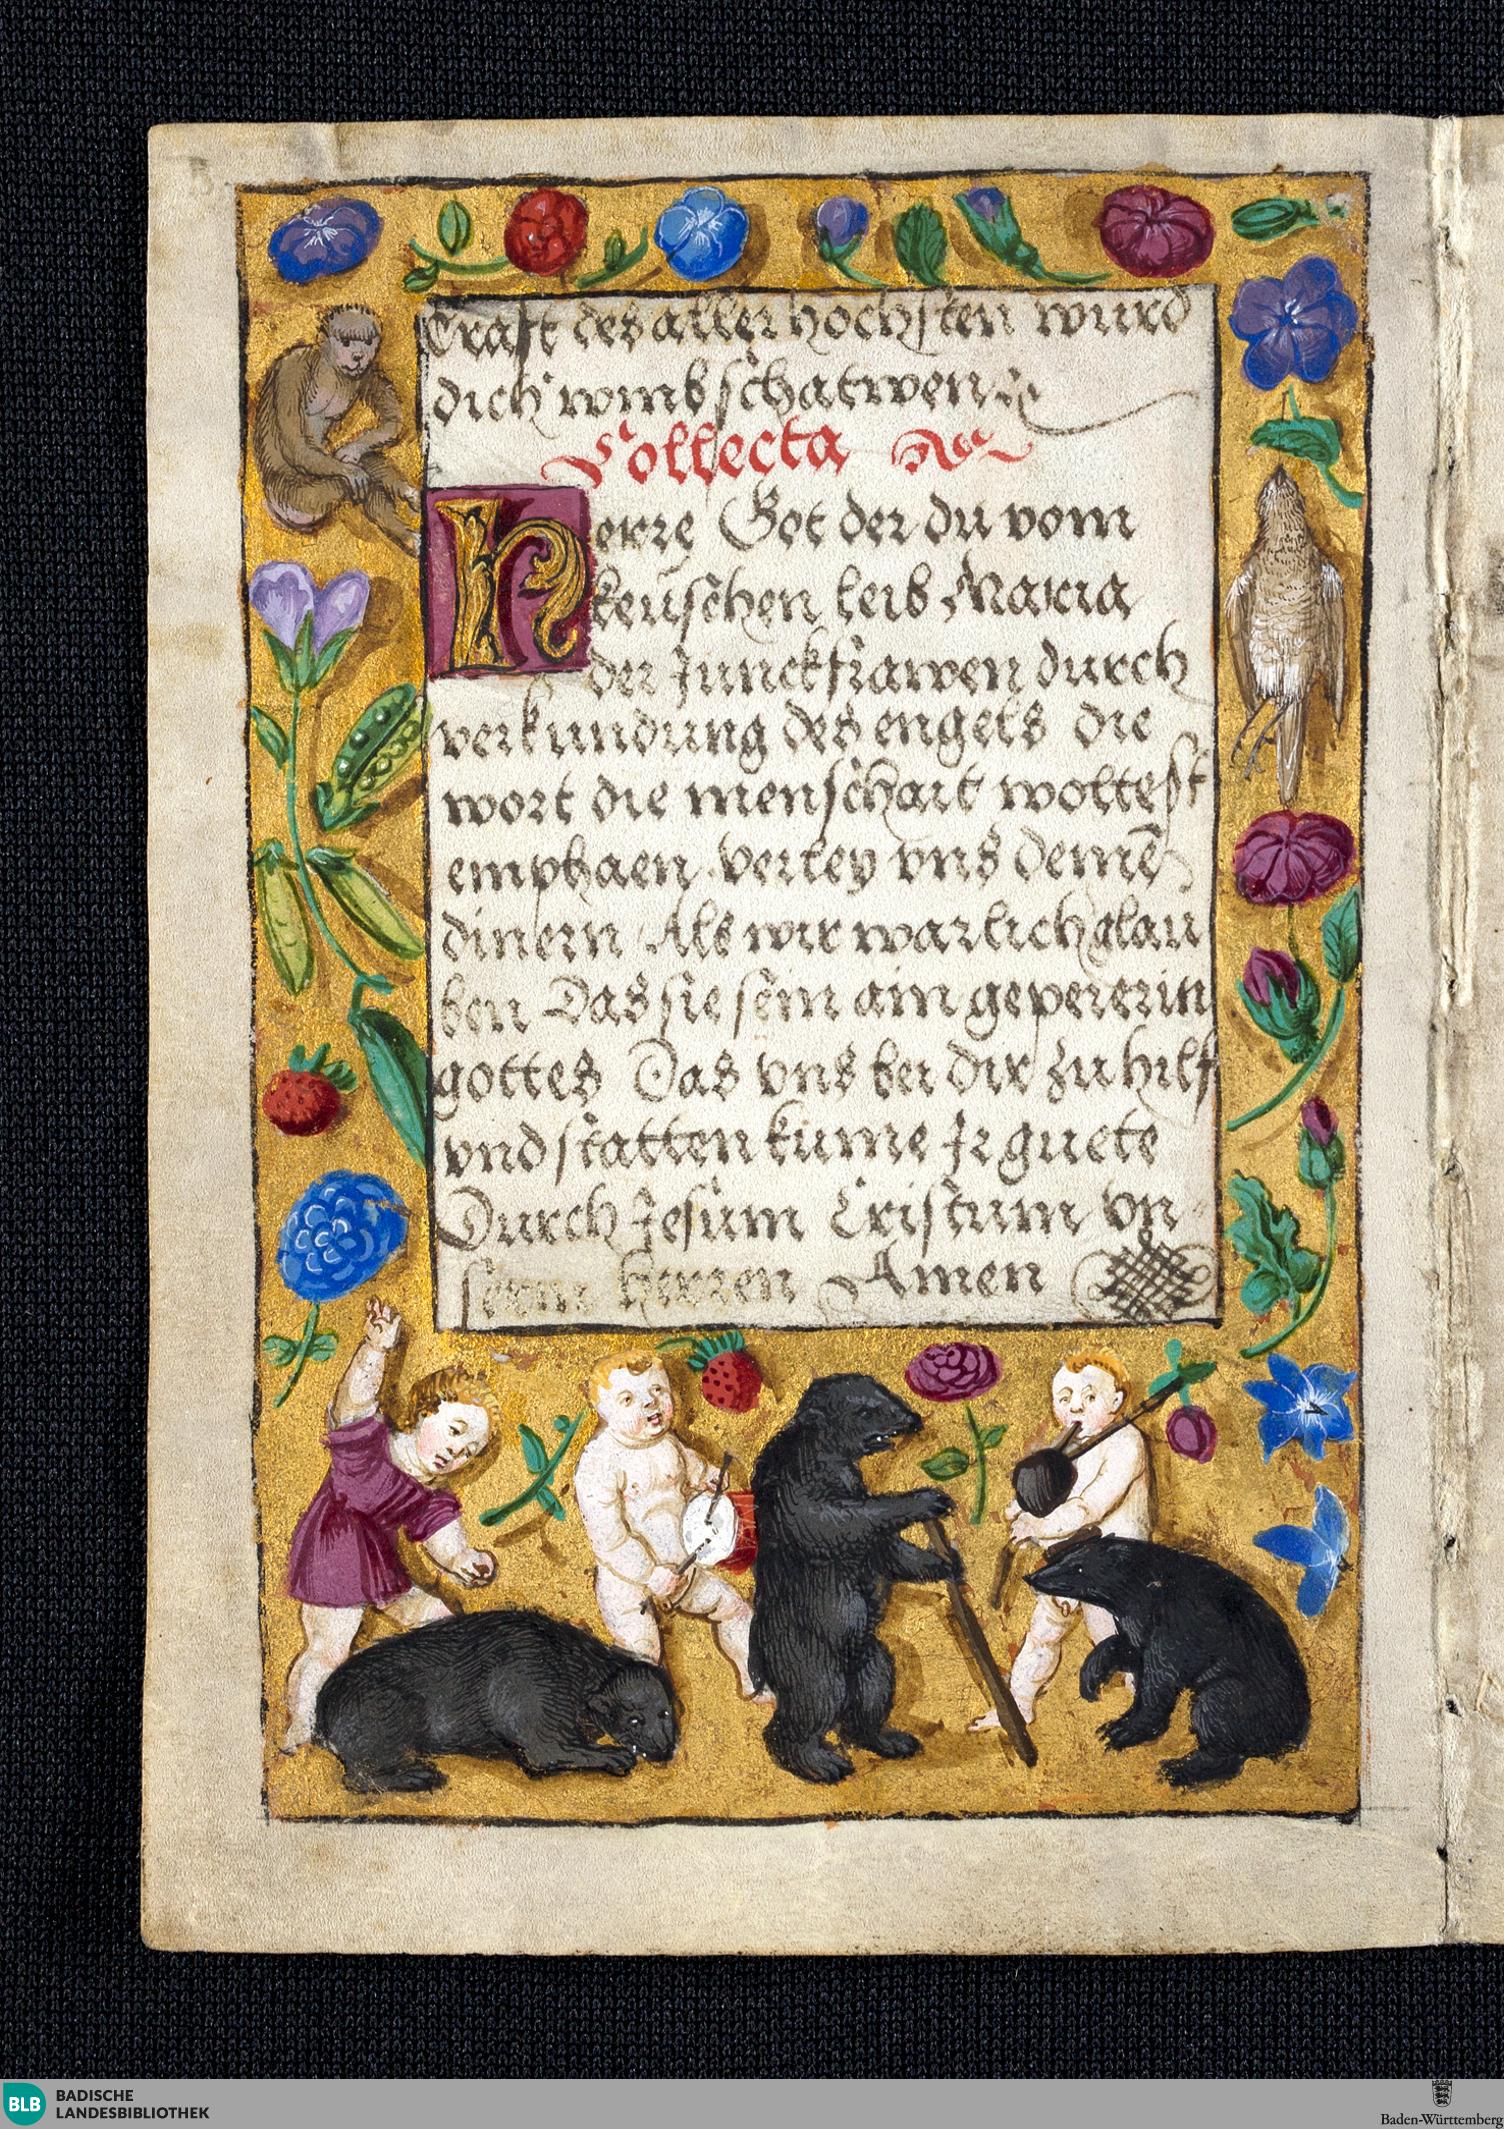 Craft des aller hochsten wurd
dich vmbschatwen
Collecta
Herre Got der du vom
keuschen leib Maria
der Junckfrawen durch
verkundung des engels die
wort die menschait woltest
emphaen verley vns deinē
dinern Als wir warlich glau
ben Das sie sein ain gepererin
gottes Das vns bei dir zu hilf
vnd statten kume Jr guete
Durch Jesum Cristum vn
serm herren Amen
BLB BADISCHE
LANDESBIBLIOTHEK
Baden-Württemberg